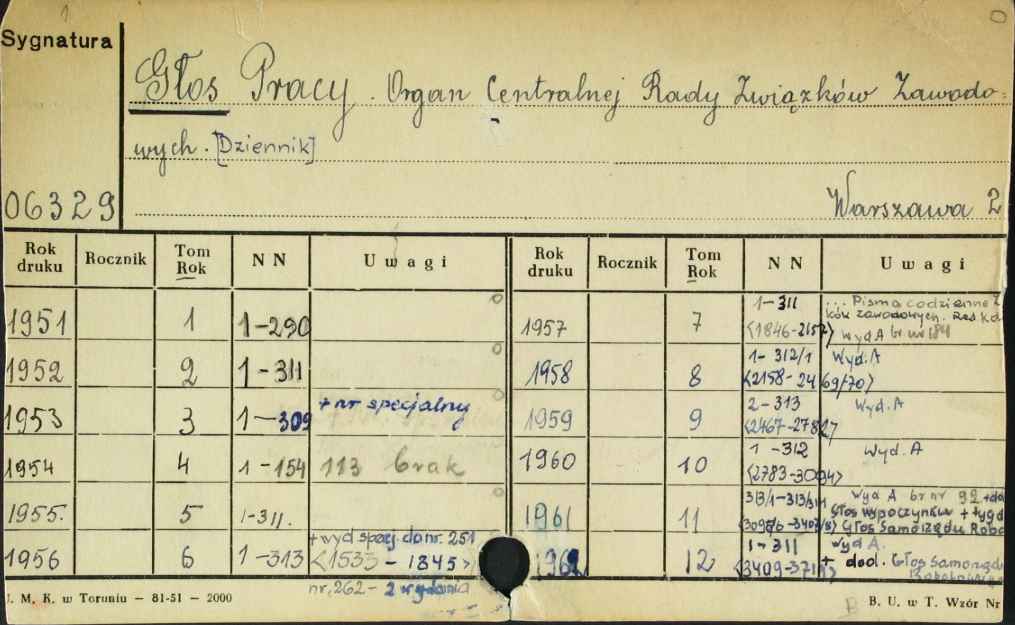 Sygnatura
Głos Pracy. Organ Centralnej Rady Związków Zawodo=
wych. [Dziennik]
06329
Warszawa 2
Rok druku Rocznik Tom Rok NN Uwagi Rok druku Rocznik Tom Rok NN Uwagi
1951 1 1-290
1952 2 1-311
1953 3 1-309 + nr specjalny
1954 4 1-154 113 brak
1955. 5 1-311.
1956 6 1-313 + wyd specj. do nr. 251
<1533 - 1845>
nr. 262 - 2 wydania
1957 7 1-311 ... Pismo codzienne
<1846-2157> ków zawodowych. Red
Wyd A br nr 184
1958 8 1-312/1 Wyd. A
<2158-2469/70>
1959 9 2-313 Wyd. A
<2467-2782>
1960 10 1-312 Wyd. A
<2783-3094>
1961 11 313/1-313/311 Wyd A br nr 92 + do
Głos wypoczynku + tygd
Głos Samorządu Robo
1962 12 1-311 wyd A.
+ dod. Głos Samorządu
U. M. K. w Toruniu — 81-51 — 2000
B B. U. w T. Wzór Nr